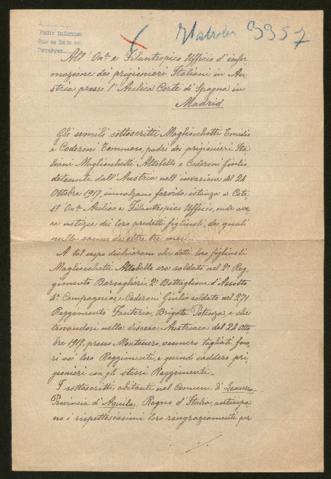 Pedir informes
Que se hace en
9357
All' On. e Filantropico Ufficio d'infor
mazione dei prigionieri Italiani in Au
stria presso l'Aulica Corte di Spagna in
Madrid
Gli umili sottoscritti Maglianchetti Emidio
e Cedroni Tommaso, padri dei prigionieri Ita
liani Maglianchetti Altobello e Cedroni Giulio
detenuti dall'Austria nell'invasione del 28
Ottobre 1917, innalzano fervida istanza a Cote
st' On. Aulico e Filantropico Ufficio, onde ave
re notizie dei loro predetti figliuoli, dei quali
nulla sanno da oltre tre mesi.
A tal uopo dichiarano che detti loro figliuoli
Maglianchetti Altobello era soldato nel 2° Reg
gimento Bersaglieri 2° Battaglione d'
6ª Compagnia; e Cedroni Giulio soldato nel 271
Reggimento Fanteria, Brigata Potenza; e che
trovandosi nella discesa Austriaca del 28 Otto
bre 1917, presso vennero tagliati fuo
ri coi loro Reggimenti, e quindi caddero pri
gionieri con gli stessi Reggimenti.
I sottoscritti, abitanti nel Comune di
Provincia d'Aquila, Regno d'Italia, anticipa
no i rispettosissimi loro ringraziamenti per